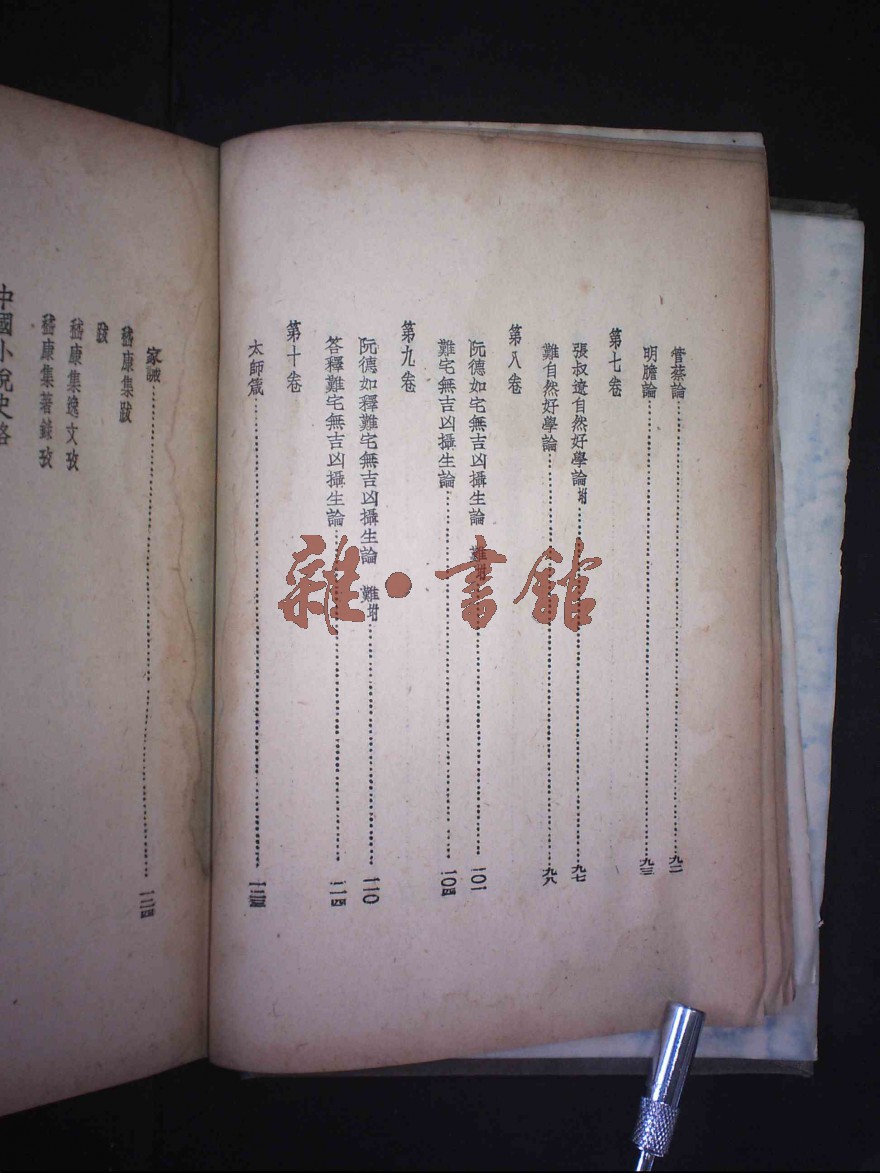 管蔡論 九二
明膽論 九三
第七卷
張叔遼自然好學論附 九七
難自然好學論 九八
第八卷
阮德如宅無吉凶攝生論 難附 一〇一
難宅無吉凶攝生論 一〇四
第九卷
阮德如釋難宅無吉凶攝生論 難附 一一〇
答釋難宅無吉凶攝生論 一一四
第十卷
太師箴
家誡 一二四
嵇康集跋
跋
嵇康集逸文攷
嵇康集著錄攷
中國小說史略
雜·書館